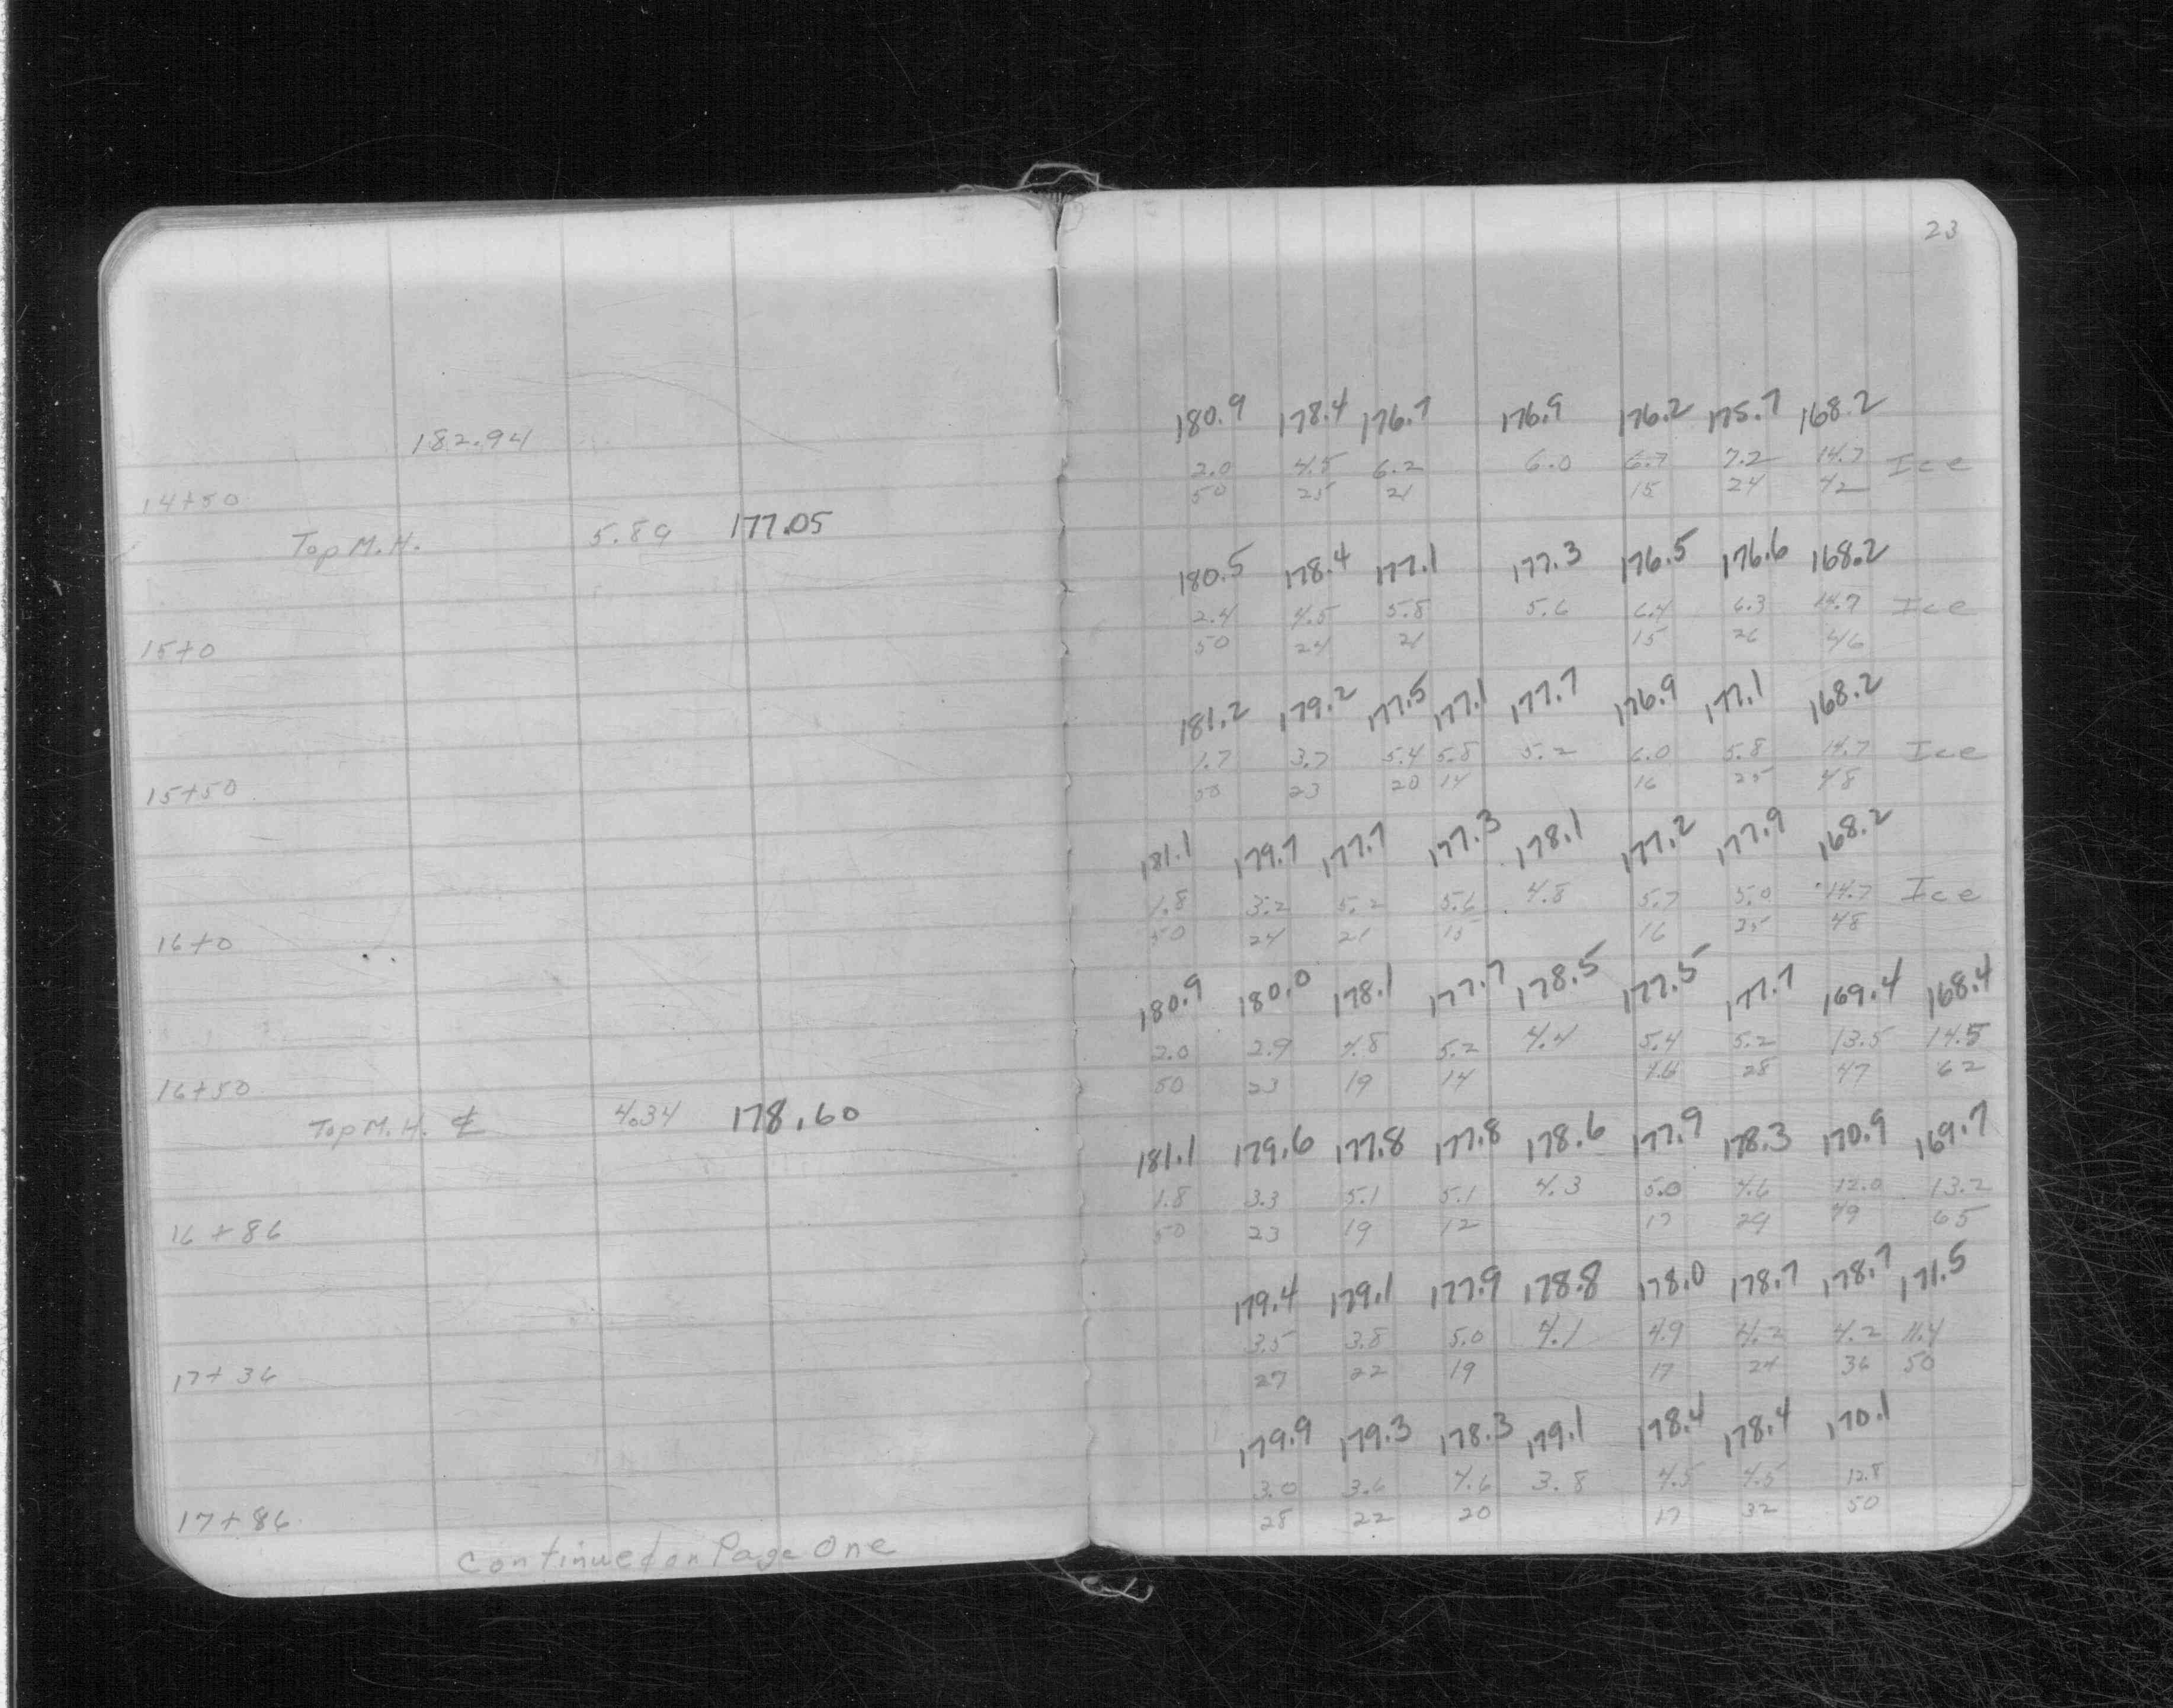 182.94
14+50
Top M.H. 5.89 177.05
15+0
15+50
16+0
16+50
Top M.H. ℄ 4.34 178.60
16+86
17+36
17+86
Continued on Page One
23
180.9 178.4 176.7 176.9 176.2 175.7 168.2
2.0 4.5 6.2 6.0 6.7 7.2 14.7 Ice
50 25 21 15 24 42
180.5 178.4 177.1 177.3 176.5 176.6 168.2
2.4 4.5 5.8 5.6 6.4 6.3 14.7 Ice
50 24 21 15 26 46
181.2 179.2 177.5 177.1 177.7 176.9 177.1 168.2
1.7 3.7 5.4 5.8 5.2 6.0 5.8 14.7 Ice
50 23 20 14 16 25 48
181.1 179.7 177.7 177.3 178.1 177.2 177.9 168.2
1.8 3.2 5.2 5.6 4.8 5.7 5.0 14.7 Ice
50 24 21 15 16 25 48
180.9 180.0 178.1 177.7 178.5 177.5 177.7 169.4 168.4
2.0 2.9 4.8 5.2 4.4 5.4 5.2 13.5 14.5
50 23 19 14 16 28 47 62
181.1 179.6 177.8 177.8 178.6 177.9 178.3 170.9 169.7
1.8 3.3 5.1 5.1 4.3 5.0 4.6 12.0 13.2
50 23 19 12 17 29 49 65
179.4 179.1 177.9 178.8 178.0 178.7 178.7 171.5
3.5 3.8 5.0 4.1 4.9 4.2 4.2 11.4
27 22 19 17 24 36 50
179.9 179.3 178.3 179.1 178.4 178.4 170.1
3.0 3.6 4.6 3.8 4.5 4.5 12.8
28 22 20 17 32 50